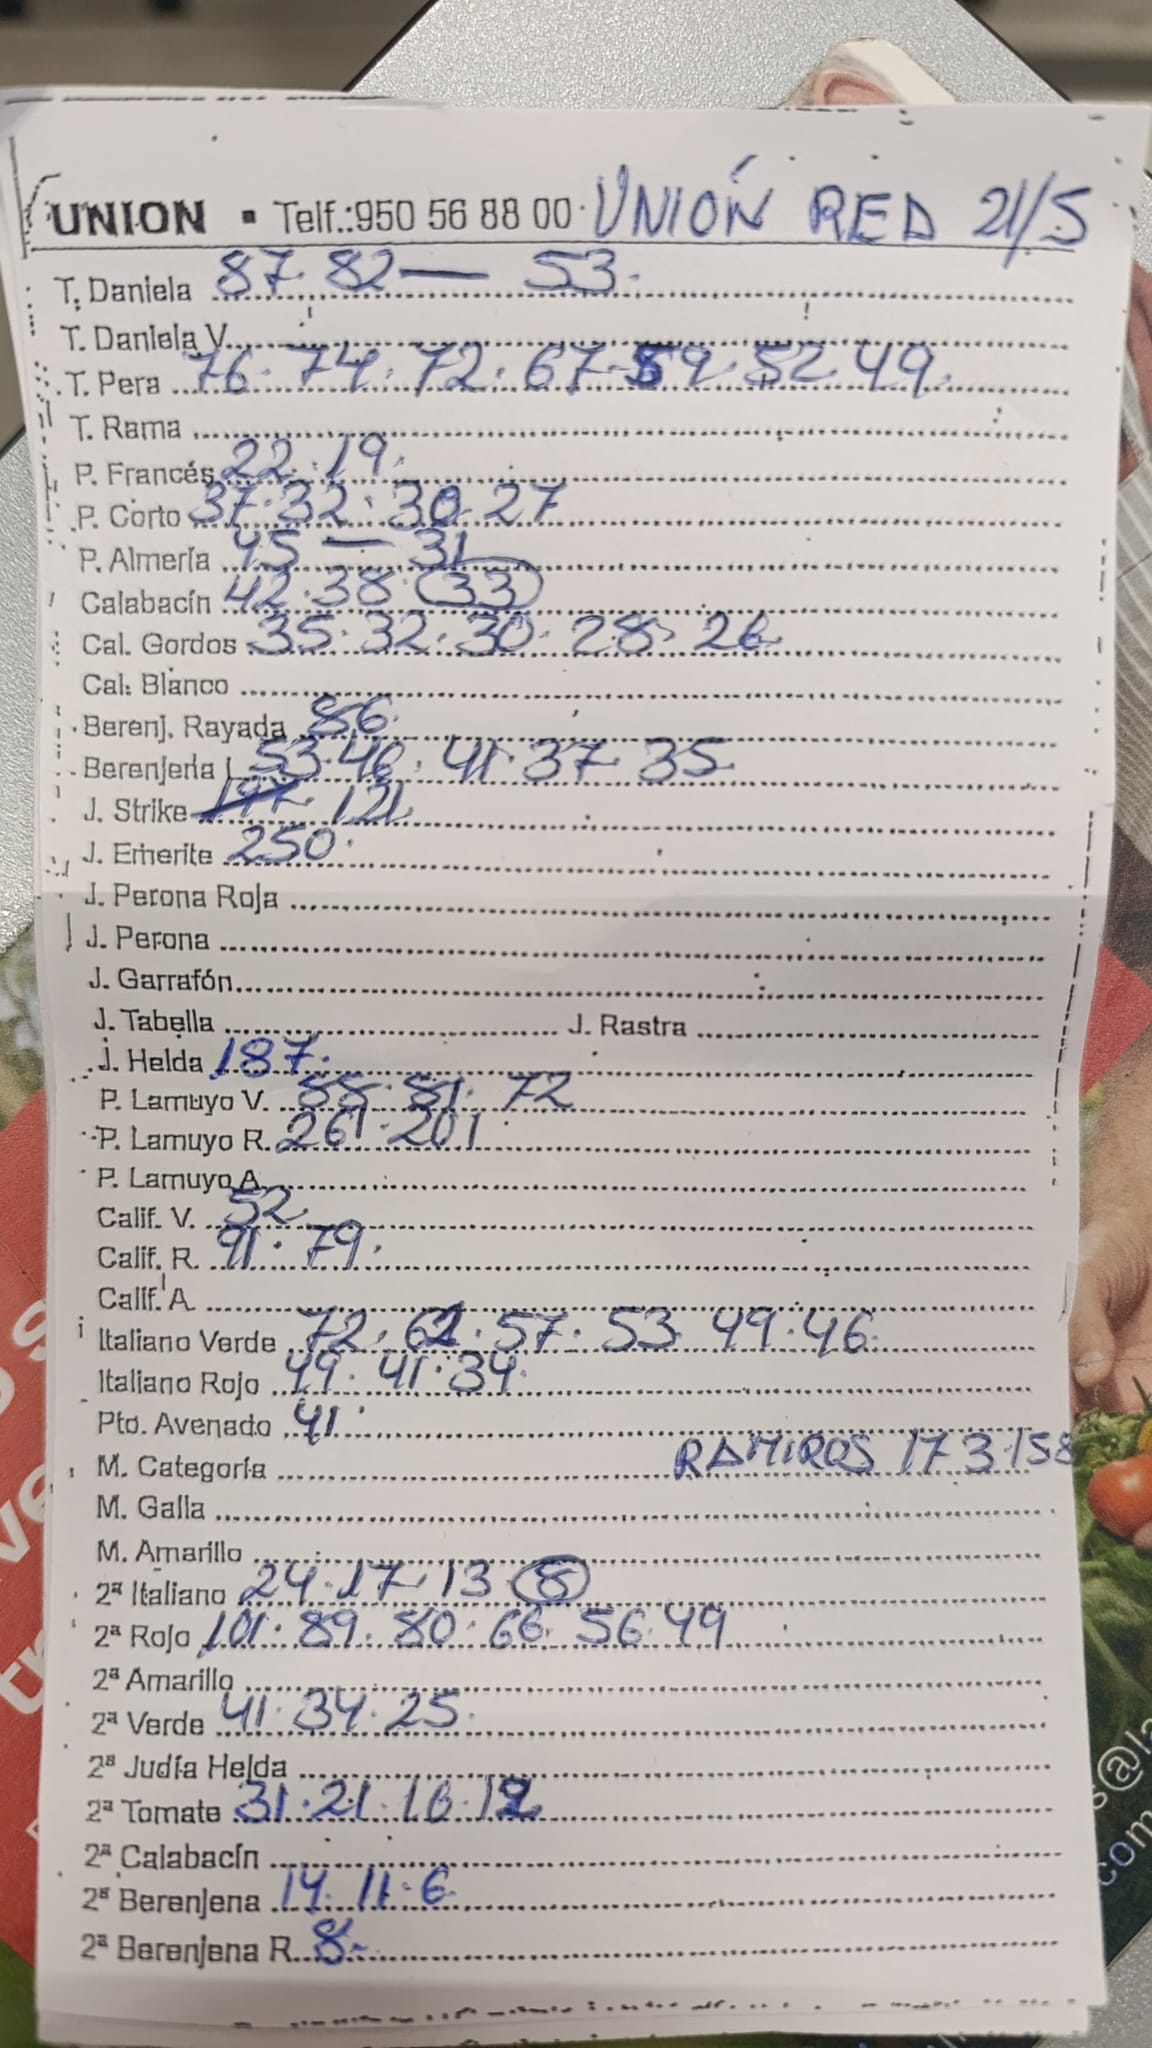 UNION ▪ Telf.:950 56 88 00 UNIÓN RED 21/5
T. Daniela 87. 82 — 53.
T. Daniela V.
T. Pera 76. 74. 72. 67. 59. 52. 49.
T. Rama
P. Francés 22. 19.
P. Corto 37. 32. 30. 27
P. Almería 45 — 31
Calabacín 42. 38 (33)
Cal. Gordos 35. 32. 30. 28. 26
Cal. Blanco
Berenj. Rayada 86.
Berenjena L 53. 46. 41. 37. 35
J. Strike 121
J. Emerite 250.
J. Perona Roja
J. Perona
J. Garrafón
J. Tabella J. Rastra
J. Helda 187.
P. Lamuyo V. 88. 81. 72
P. Lamuyo R. 261. 201
P. Lamuyo A.
Calif. V. 52
Calif. R. 91. 79.
Calif. A.
Italiano Verde 72. 62. 57. 53. 49. 46.
Italiano Rojo 49. 41. 34.
Pto. Avenado 41.
M. Categoría RAMIROS 173.158
M. Galla
M. Amarillo
2ª Italiano 24. 17. 13 (8)
2ª Rojo 101. 89. 80. 66. 56. 49
2ª Amarillo
2ª Verde 41. 34. 25.
2ª Judía Helda
2ª Tomate 31. 21. 16. 12
2ª Calabacín
2ª Berenjena 14. 11. 6
2ª Berenjena R. 8.